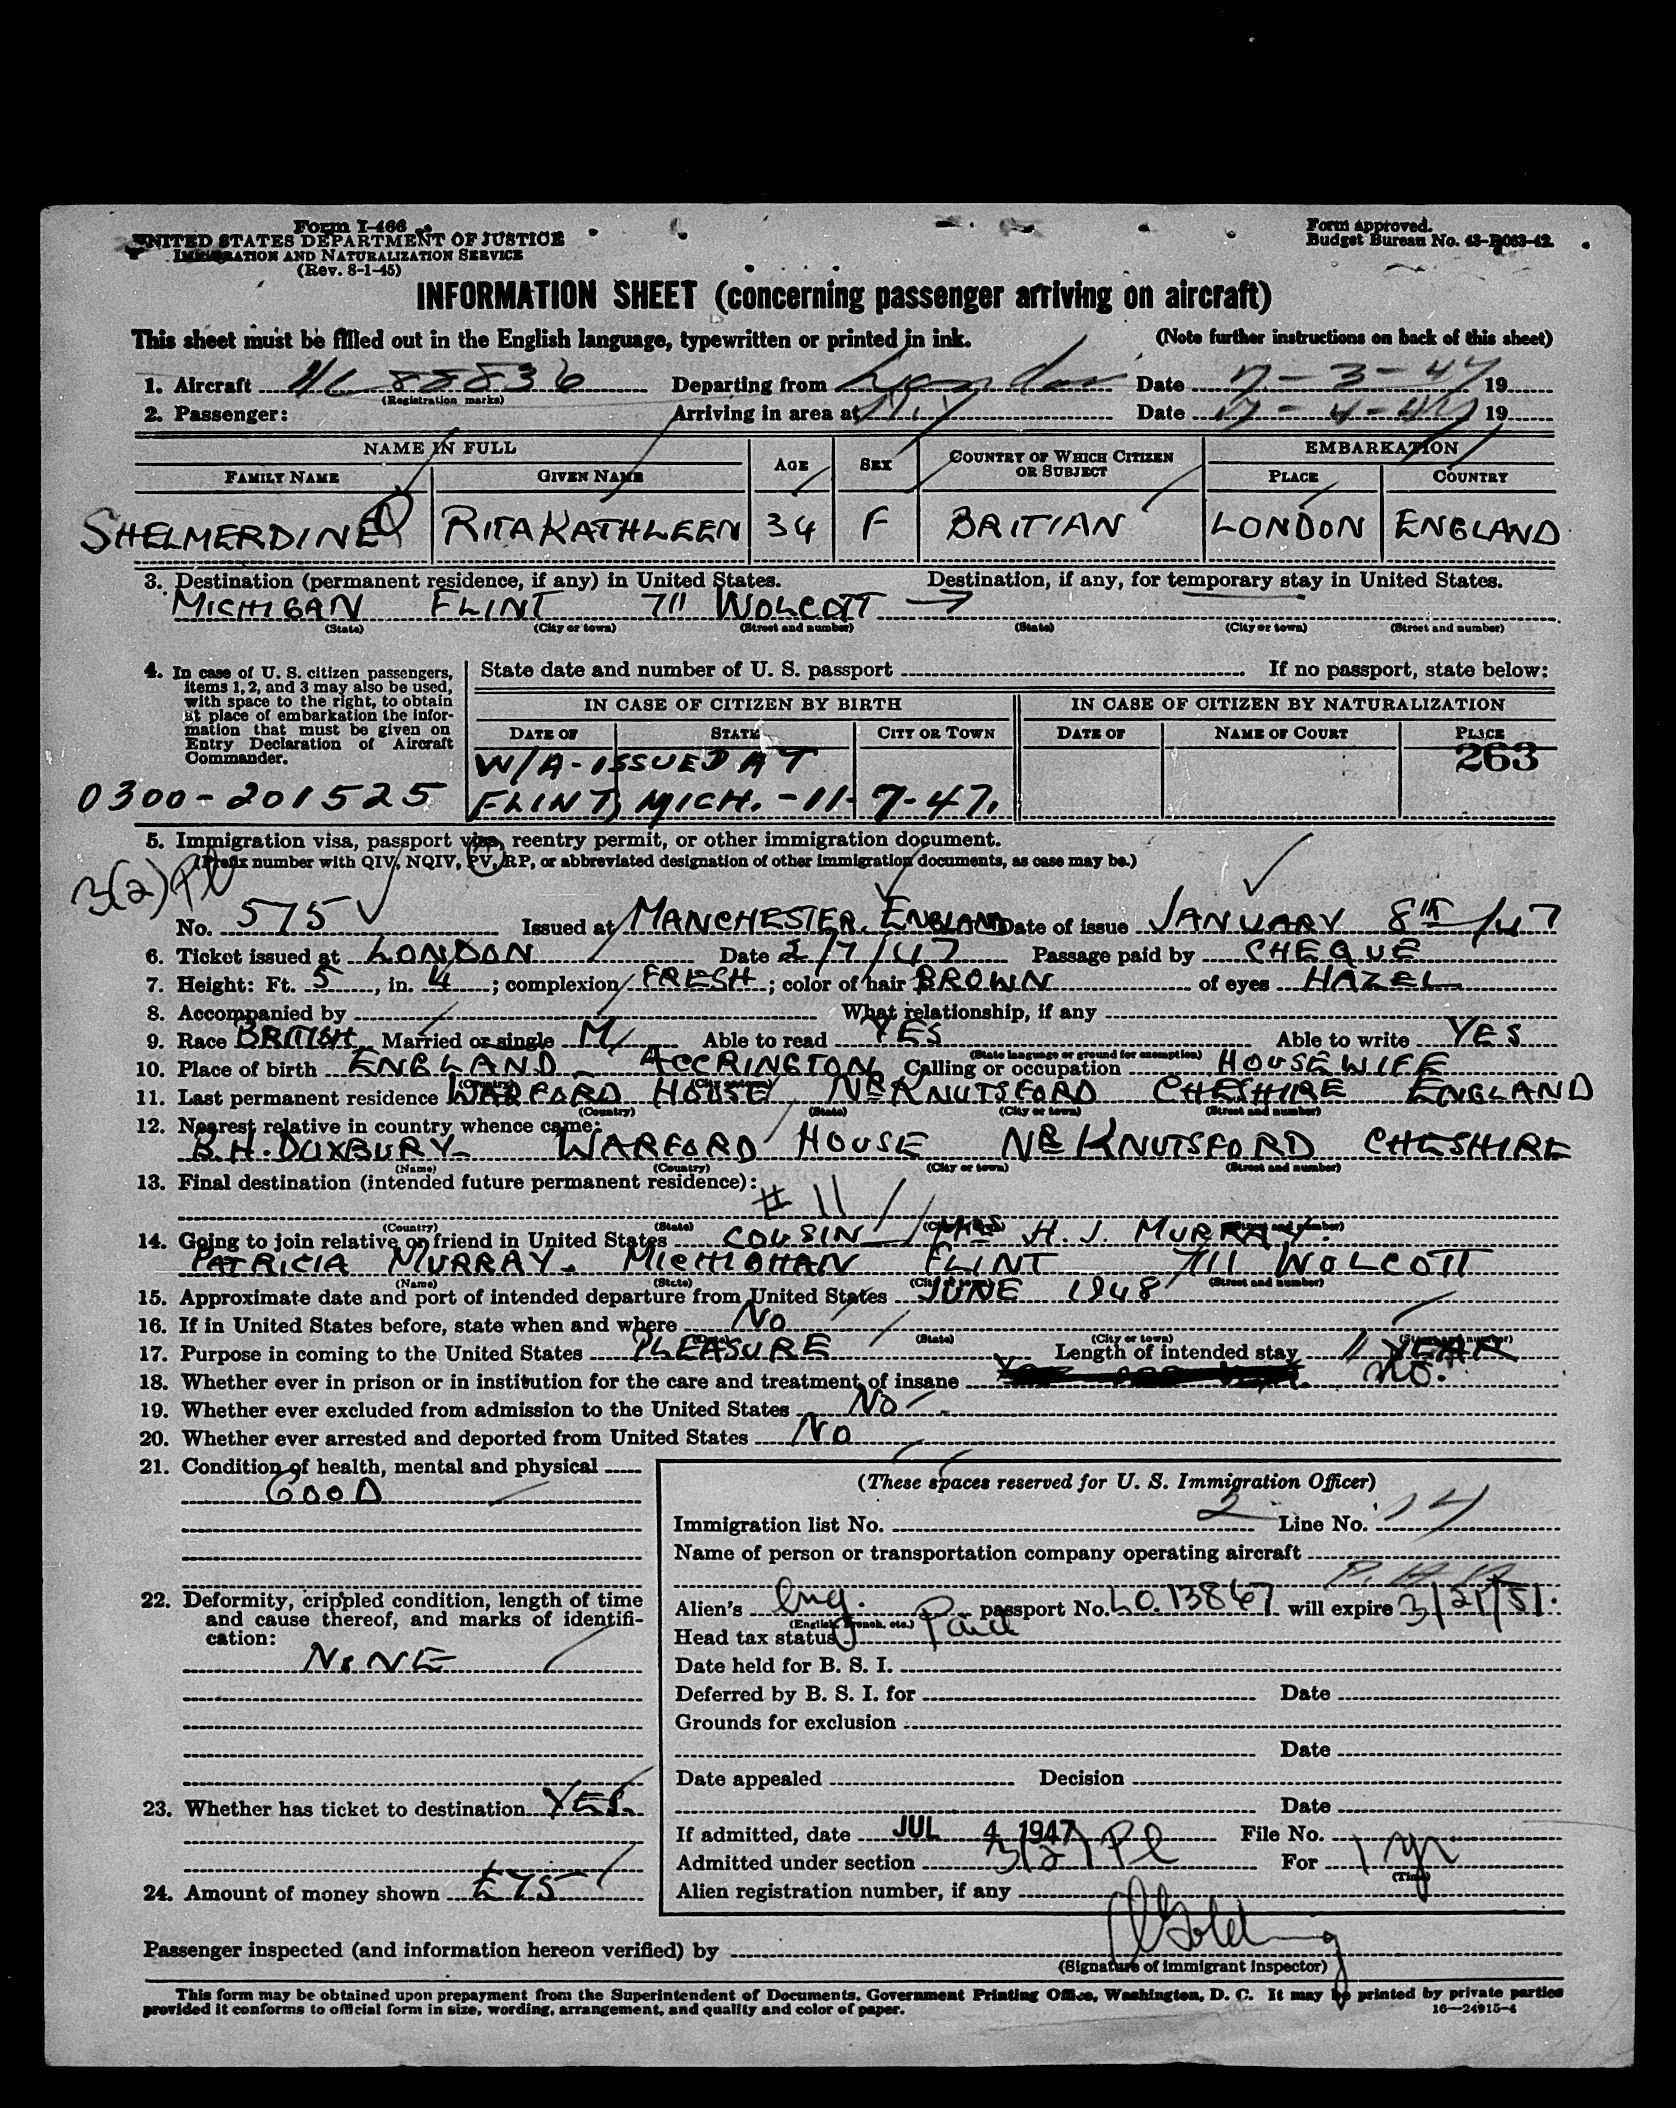 Form I-466
UNITED STATES DEPARTMENT OF JUSTICE
IMMIGRATION AND NATURALIZATION SERVICE
(Rev. 8-1-45)
Form approved.
Budget Bureau No. 43-R063-42.
INFORMATION SHEET (concerning passenger arriving on aircraft)
This sheet must be filled out in the English language, typewritten or printed in ink. (Note further instructions on back of this sheet)
1. Aircraft NC 88836 Departing from London Date 7-3-47 19
(Registration marks)
2. Passenger: Arriving in area at N.Y. Date 7-4-47 19
NAME IN FULL AGE SEX COUNTRY OF WHICH CITIZEN OR SUBJECT EMBARKATION
FAMILY NAME GIVEN NAME PLACE COUNTRY
SHELMERDINE RITA KATHLEEN 34 F BRITIAN LONDON ENGLAND
3. Destination (permanent residence, if any) in United States. Destination, if any, for temporary stay in United States.
MICHIGAN FLINT 711 WOLCOTT →
(State) (City or town) (Street and number) (State) (City or town) (Street and number)
4. In case of U. S. citizen passengers,
items 1, 2, and 3 may also be used,
with space to the right, to obtain
at place of embarkation the infor-
mation that must be given on
Entry Declaration of Aircraft
Commander.
State date and number of U. S. passport If no passport, state below:
IN CASE OF CITIZEN BY BIRTH IN CASE OF CITIZEN BY NATURALIZATION
DATE OF STATE CITY OR TOWN DATE OF NAME OF COURT PLACE
263
W/A-ISSUED AT
0300-201525 FLINT, MICH. -11-7-47.
5. Immigration visa, passport visa, reentry permit, or other immigration document.
(Prefix number with QIV, NQIV, PV, RP, or abbreviated designation of other immigration documents, as case may be.)
3(2) Pl
No. 575 Issued at MANCHESTER, ENGLAND Date of issue JANUARY 8TH /47
6. Ticket issued at LONDON Date 2/7/47 Passage paid by CHEQUE
7. Height: Ft. 5, in. 4; complexion FRESH; color of hair BROWN of eyes HAZEL
8. Accompanied by What relationship, if any
9. Race BRITISH Married or single M Able to read YES Able to write YES
(State language or ground for exemption)
10. Place of birth ENGLAND - ACCRINGTON Calling or occupation HOUSEWIFE
(Country) (City or town)
11. Last permanent residence WARFORD HOUSE NR KNUTSFORD CHESHIRE ENGLAND
(Country) (State) (City or town) (Street and number)
12. Nearest relative in country whence came:
B.H. DUXBURY - WARFORD HOUSE NR KNUTSFORD CHESHIRE
(Name) (Country) (City or town) (Street and number)
13. Final destination (intended future permanent residence):
# 11
(Country) (State) (City or town) (Street and number)
14. Going to join relative or friend in United States COUSIN MRS H. J. MURRAY.
PATRICIA MURRAY. MICHIGHAN FLINT 711 WOLCOTT
(Name) (State) (City or town) (Street and number)
15. Approximate date and port of intended departure from United States JUNE 1948
16. If in United States before, state when and where NO
(Date) (State) (City or town) (Street and number)
17. Purpose in coming to the United States PLEASURE Length of intended stay 11 YEAR
18. Whether ever in prison or in institution for the care and treatment of insane NO.
19. Whether ever excluded from admission to the United States NO
20. Whether ever arrested and deported from United States NO
21. Condition of health, mental and physical
GOOD
22. Deformity, crippled condition, length of time
and cause thereof, and marks of identifi-
cation:
NONE
23. Whether has ticket to destination YES
24. Amount of money shown £75
(These spaces reserved for U. S. Immigration Officer)
Immigration list No. 2 Line No. 14
Name of person or transportation company operating aircraft
P.A.A.
Alien's Eng. passport No. LO.13867 will expire 3/21/51.
(English, French, etc.)
Head tax status Paid
Date held for B. S. I.
Deferred by B. S. I. for Date
Grounds for exclusion
Date
Date appealed Decision
Date
If admitted, date JUL 4 1947 File No.
Admitted under section 3(2) Pl For 1 yr
(Time)
Alien registration number, if any
Passenger inspected (and information hereon verified) by
(Signature of immigrant inspector)
This form may be obtained upon prepayment from the Superintendent of Documents, Government Printing Office, Washington, D. C. It may be printed by private parties
provided it conforms to official form in size, wording, arrangement, and quality and color of paper. 16—24915-4